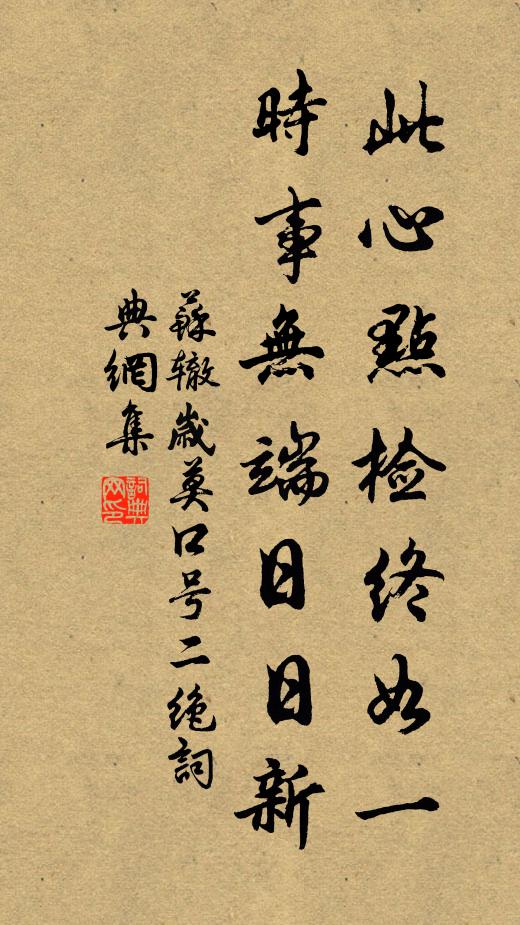 此心點检終如一
時事無端日日新
蘇辙歲莫口号二绝詞
典網集
詞典網印